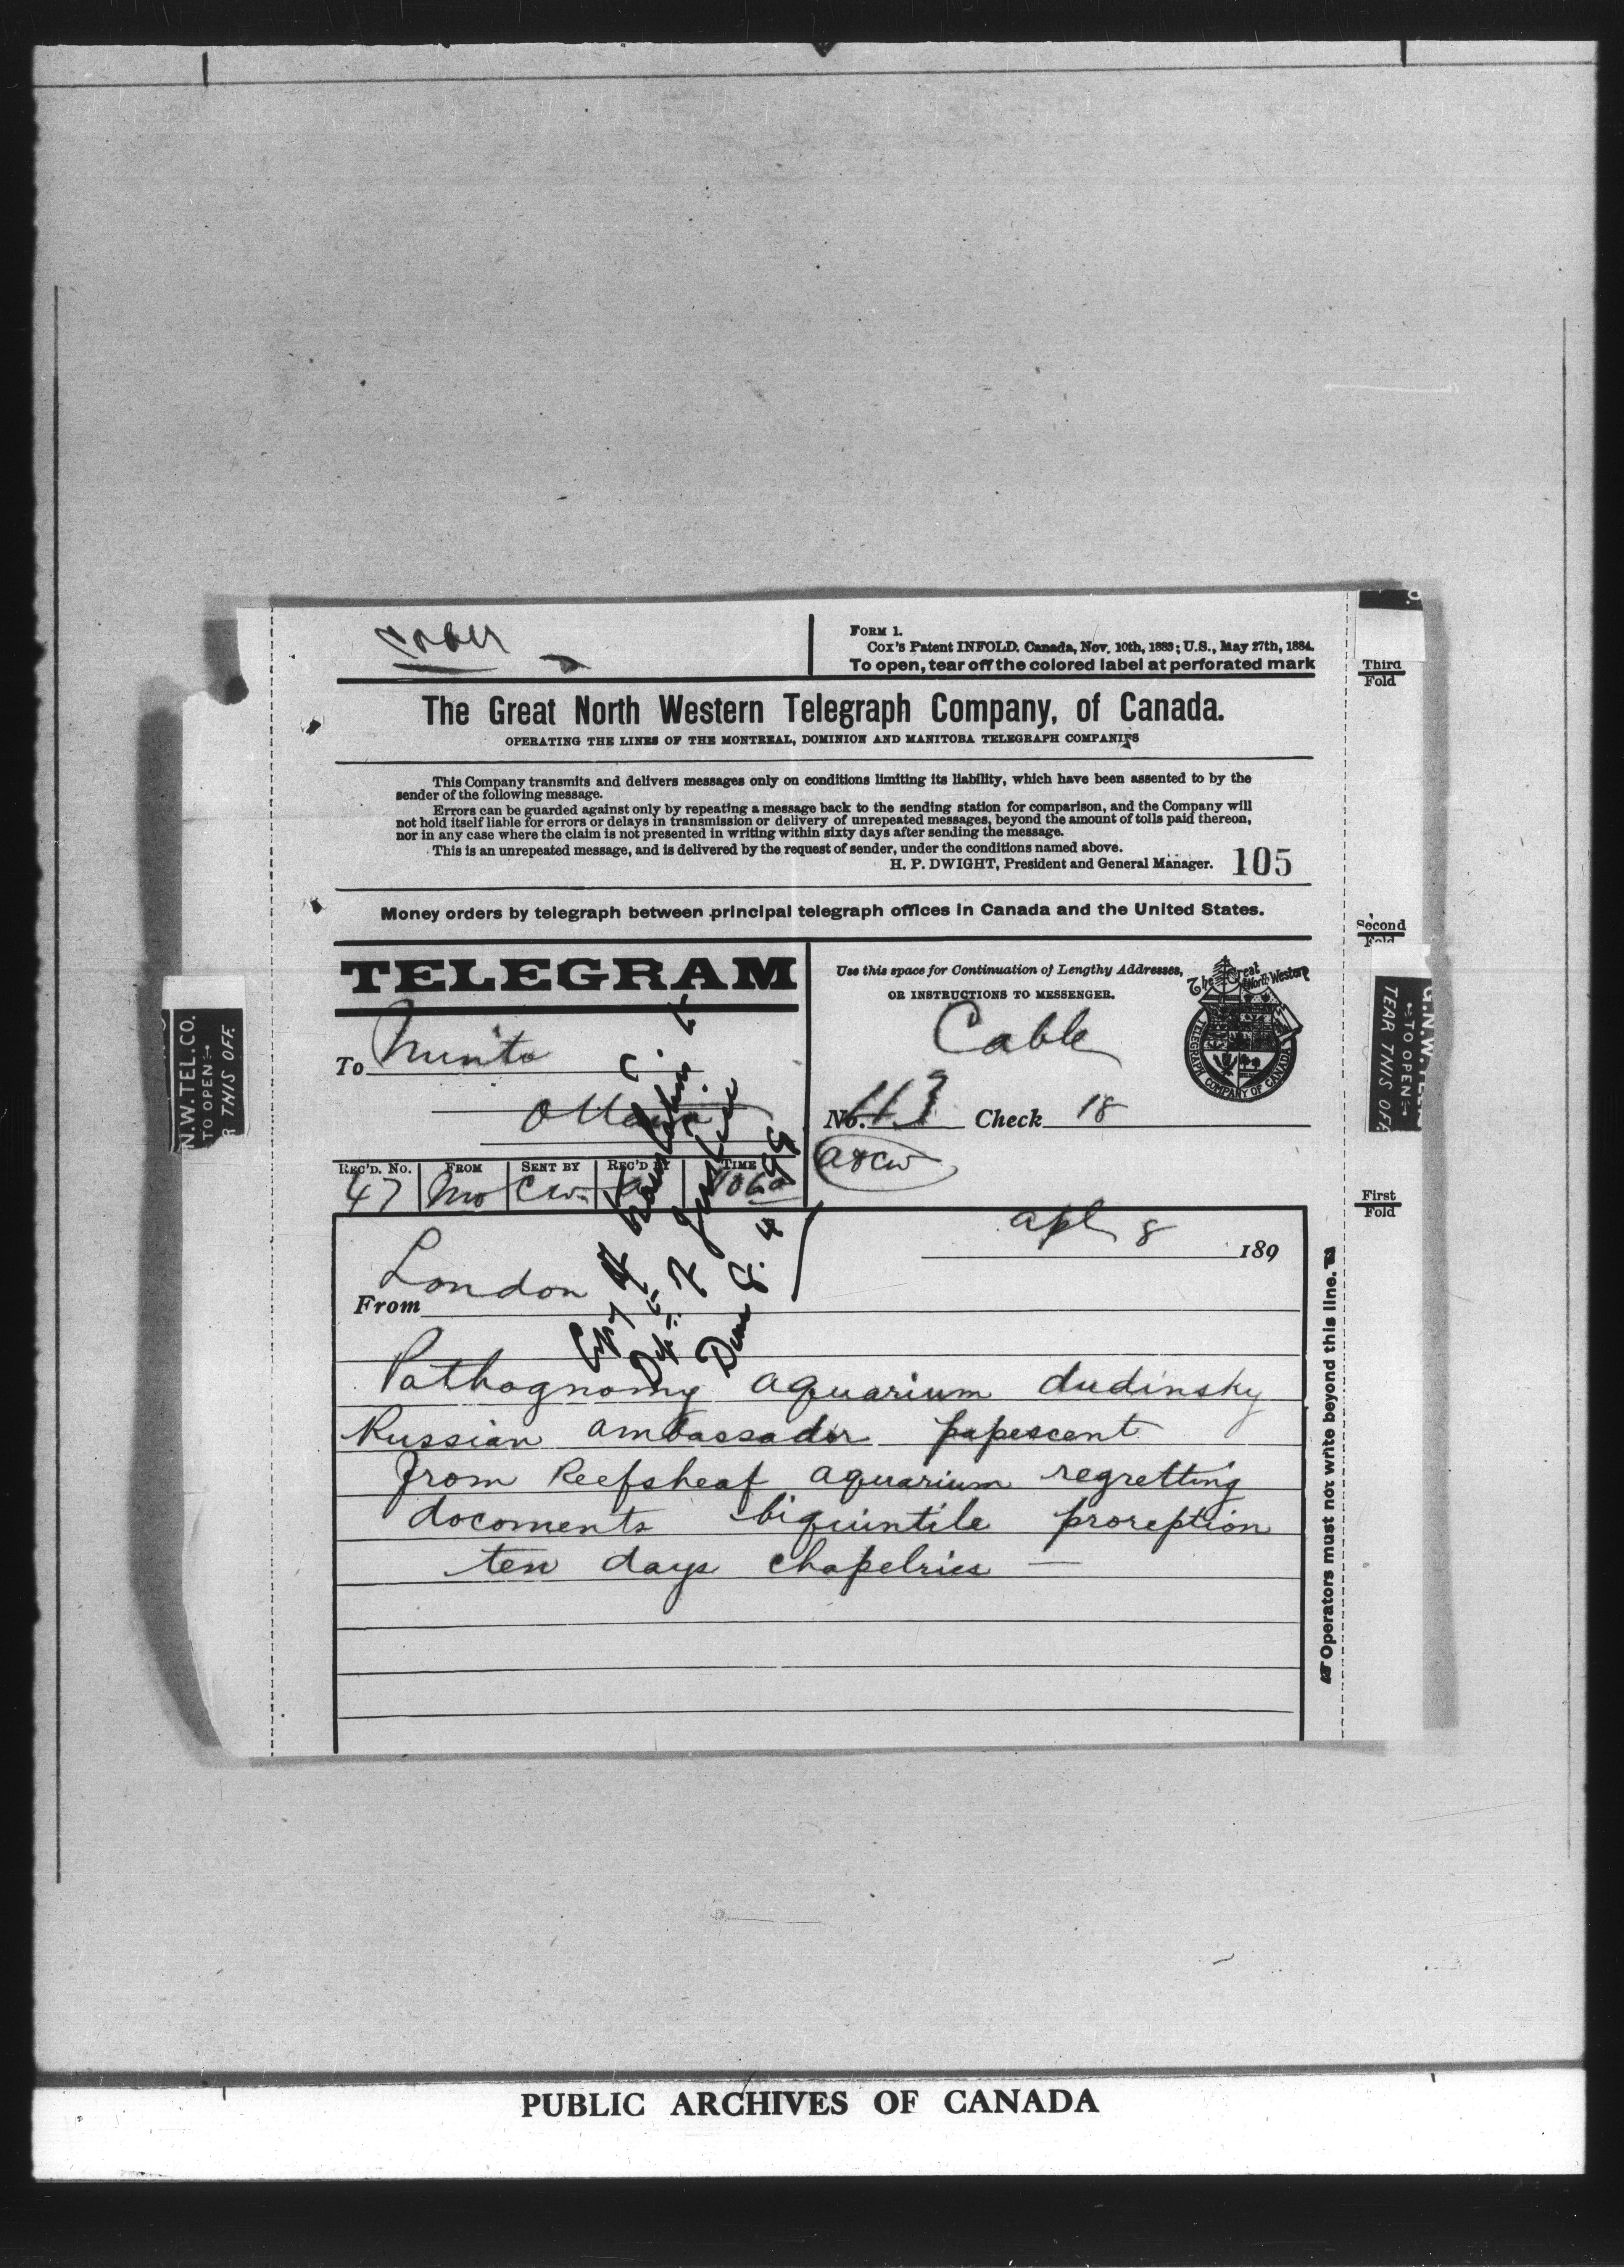 FORM 1.
Cox's Patent INFOLD. Canada, Nov. 10th, 1883; U.S., May 27th, 1884.
To open, tear off the colored label at perforated mark
The Great North Western Telegraph Company, of Canada.
OPERATING THE LINES OF THE MONTREAL, DOMINION AND MANITOBA TELEGRAPH COMPANIES
This Company transmits and delivers messages only on conditions limiting its liability, which have been assented to by the
sender of the following message.
Errors can be guarded against only by repeating a message back to the sending station for comparison, and the Company will
not hold itself liable for errors or delays in transmission or delivery of unrepeated messages, beyond the amount of tolls paid thereon,
nor in any case where the claim is not presented in writing within sixty days after sending the message.
This is an unrepeated message, and is delivered by the request of sender, under the conditions named above.
H. P. DWIGHT, President and General Manager. 105
Money orders by telegraph between principal telegraph offices in Canada and the United States.
TELEGRAM
Use this space for Continuation of Lengthy Addresses,
OR INSTRUCTIONS TO MESSENGER.
The Great North Western
TELEGRAPH COMPANY OF CANADA
Cable
To Minto
Ottawa
No. 113 Check 18
REC'D. No. FROM SENT BY REC'D BY TIME
47 Mo CW
London
apl 8 189
From
Pathognomy aquarium dudinsky
Russian ambassador papescent
from Reefsheaf aquarium regretting
docoments biquintile proreption
ten days chapelries —
Operators must not write beyond this line.
Third
Fold
Second
Fold
First
Fold
N.W.TEL.CO.
TO OPEN
R THIS OFF.
G.N.W.TEL
TO OPEN
TEAR THIS OFF.
PUBLIC ARCHIVES OF CANADA